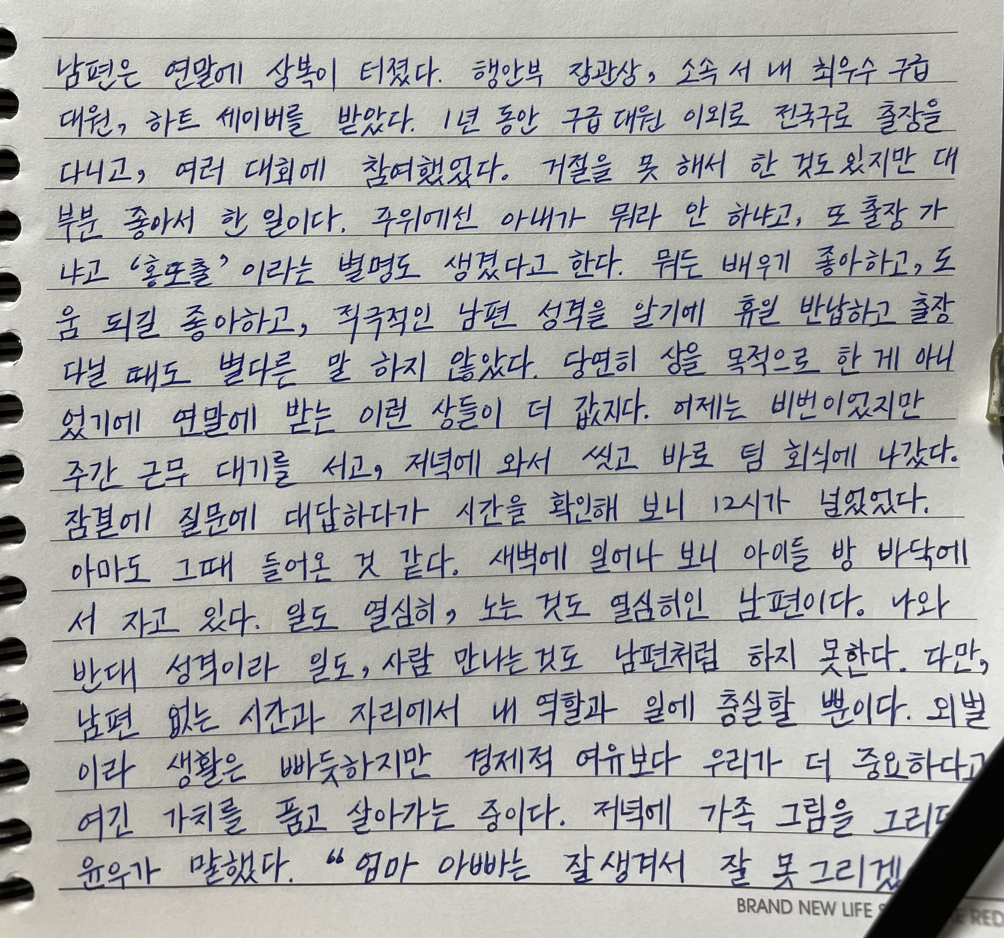 남편은 연말에 상복이 터졌다. 행안부 장관상, 소속 서 내 최우수 구급
대원, 하트 세이버를 받았다. 1년 동안 구급 대원 이외로 전국구로 출장을
다니고, 여러 대회에 참여했었다. 거절을 못 해서 한 것도 있지만 대
부분 좋아서 한 일이다. 주위에선 아내가 뭐라 안 하냐고, 또 출장 가
냐고 '홍또출' 이라는 별명도 생겼다고 한다. 뭐든 배우기 좋아하고, 도
움 되길 좋아하고, 적극적인 남편 성격을 알기에 휴일 반납하고 출장
다닐 때도 별다른 말 하지 않았다. 당연히 상을 목적으로 한 게 아니
었기에 연말에 받는 이런 상들이 더 값지다. 어제는 비번이었지만
주간 근무 대기를 서고, 저녁에 와서 씻고 바로 팀 회식에 나갔다.
잠결에 질문에 대답하다가 시간을 확인해 보니 12시가 넘었었다.
아마도 그때 들어온 것 같다. 새벽에 일어나 보니 아이들 방 바닥에
서 자고 있다. 일도 열심히, 노는 것도 열심히인 남편이다. 나와
반대 성격이라 일도, 사람 만나는것도 남편처럼 하지 못한다. 다만,
남편 없는 시간과 자리에서 내 역할과 일에 충실할 뿐이다. 외벌
이라 생활은 빠듯하지만 경제적 여유보다 우리가 더 중요하다고
여긴 가치를 품고 살아가는 중이다. 저녁에 가족 그림을 그리
윤우가 말했다. "엄마 아빠는 잘생겨서 잘 못 그리겠
BRAND NEW LIFE RED